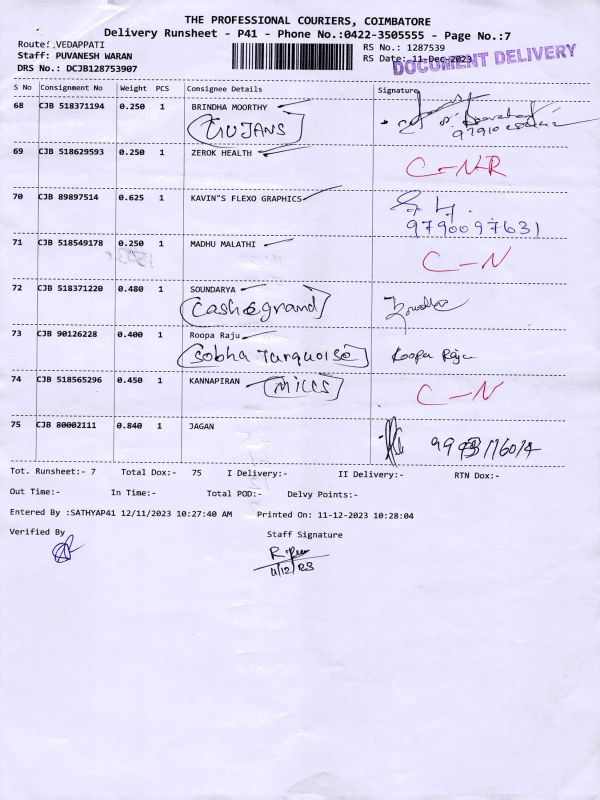 THE PROFESSIONAL COURIERS, COIMBATORE
Delivery Runsheet - P41 - Phone No.:0422-3505555 - Page No.:7
Route: .VEDAPPATI RS No.: 1287539
Staff: PUVANESH WARAN RS Date: 11-Dec-2023
DRS No.: DCJB128753907 DOCUMENT DELIVERY
S No Consignment No Weight PCS Consignee Details Signature
68 CJB 518371194 0.250 1 BRINDHA MOORTHY
69 CJB 518629593 0.250 1 ZEROK HEALTH C-NR
70 CJB 89897514 0.625 1 KAVIN"S FLEXO GRAPHICS
9790097631
71 CJB 518549178 0.250 1 MADHU MALATHI C-N
72 CJB 518371220 0.480 1 SOUNDARYA
Cash&grand
73 CJB 90126228 0.400 1 Roopa Raju
Sobha Turquoise Roopa Raju
74 CJB 518565296 0.450 1 KANNAPIRAN Mills C-N
75 CJB 80002111 0.840 1 JAGAN
Tot. Runsheet:- 7 Total Dox:- 75 I Delivery:- II Delivery:- RTN Dox:-
Out Time:- In Time:- Total POD:- Delvy Points:-
Entered By :SATHYAP41 12/11/2023 10:27:40 AM Printed On: 11-12-2023 10:28:04
Verified By Staff Signature
11/12/23